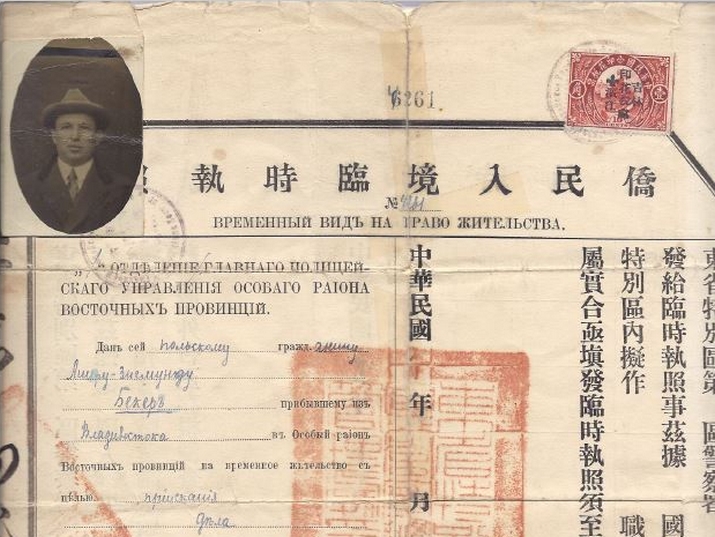 6261.
僑民入境臨時執
№
ВРЕМЕННЫЙ ВИДЪ НА ПРАВО ЖИТЕЛЬСТВА.
ОТДѢЛЕНІЕ ГЛАВНАГО ПОЛИЦЕЙ-
СКАГО УПРАВЛЕНІЯ ОСОБАГО РАІОНА
ВОСТОЧНЫХЪ ПРОВИНЦІЙ.
Данъ сей польскому гражд.
Бекеръ прибывшему изъ
Владивостока въ Особый раіонъ
Восточныхъ провинцій на временное жительство съ
цѣлью пріисканія
дѣла
東省特別區第 區警察署
發給臨時執照事茲據 國
特別區內擬作 職
屬實合亟填發臨時執照須至
中華民國 年 月